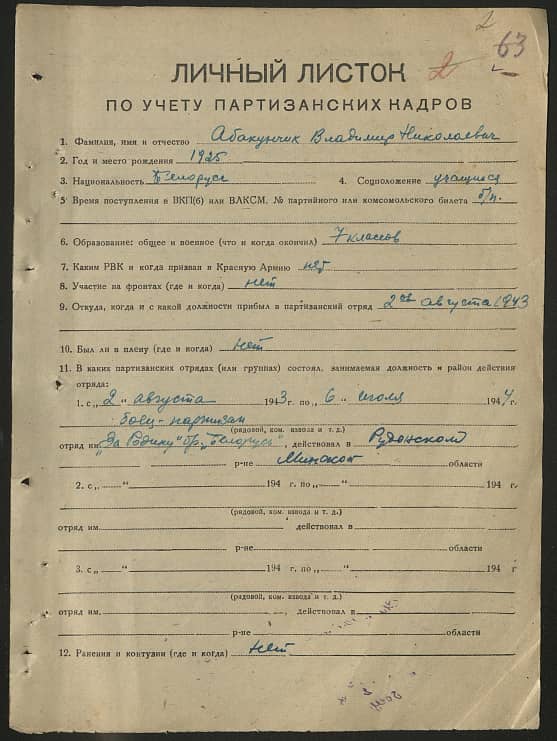 2
2 63
ЛИЧНЫЙ ЛИСТОК
ПО УЧЕТУ ПАРТИЗАНСКИХ КАДРОВ
1. Фамилия, имя и отчество Абакунчик Владимир Николаевич
2. Год и место рождения 1925
3. Национальность Белорус 4. Соцположение учащийся
5 Время поступления в ВКП(б) или ВЛКСМ, № партийного или комсомольского билета б/п.
6. Образование: общее и военное (что и когда окончил) 7 классов
7. Каким РВК и когда призван в Красную Армию нет
8. Участие на фронтах (где и когда) нет
9. Откуда, когда и с какой должности прибыл в партизанский отряд 2го августа 1943
10. Был ли в плену (где и когда) нет
11. В каких партизанских отрядах (или группах) состоял, занимаемая должность и район действия
отряда:
1. с „2 “ августа 1943 г. по „ 6 “ июля 1944 г.
боец-партизан
(рядовой, ком. взвода и т. д.)
отряд им „За Родину“ бр. „Беларусь“, действовал в Руденском
р-не Минской области
2. с „—“ 194 г. по „—“ 194 г
(рядовой, ком. взвода и т. д.)
отряд им. действовал в
р-не области
3. с „—“ 194 г. по „—“ 194 г
(рядовой, ком. взвода и т. д.)
отряд им. , действовал в
р-не области
12. Ранения и контузии (где и когда) нет